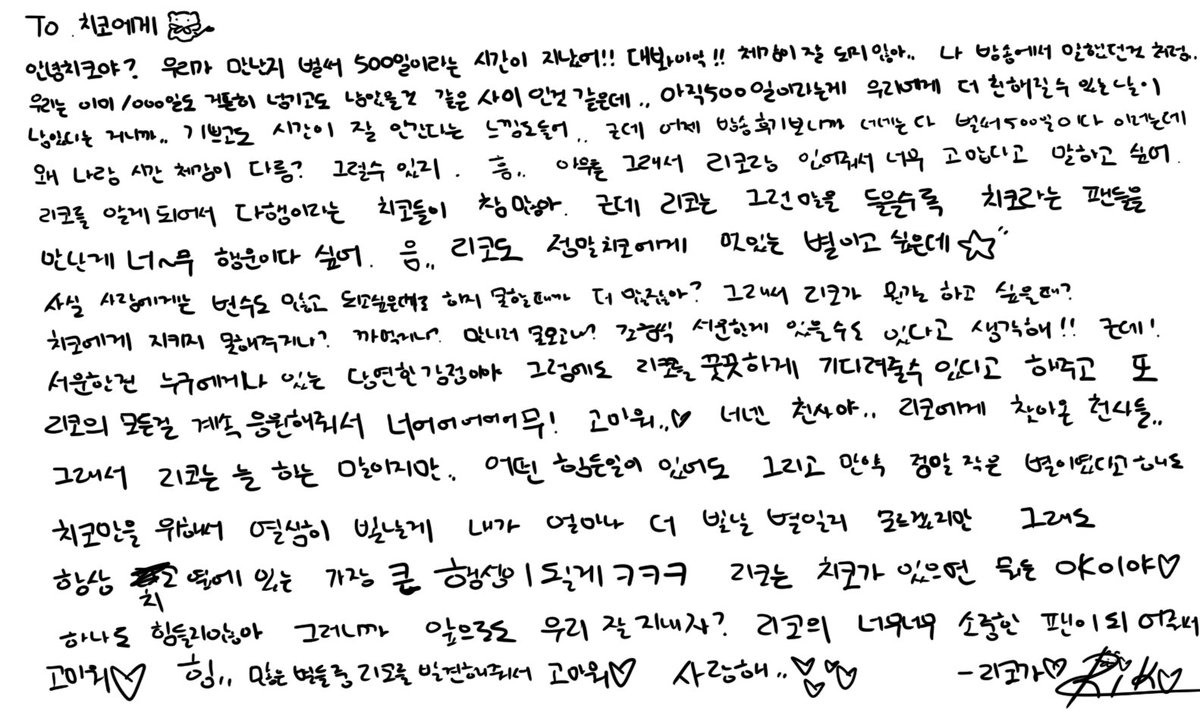 To. 치코에게
안녕치코야? 우리가 만난지 벌써 500일이라는 시간이 지났어!! 대박이익!! 체감이 잘 되지않아.. 나 방송에서 말했던것 처럼.
우리는 이미 1000일도 거뜬히 넘기고도 남았을것 같은 사이 인것 같은데.. 아직500일이라는게 우리에게 더 친해질수 있는 날이
남았다는 거니까.. 기쁘고도 시간이 잘 안간다는 느낌도들어. 근데 어제 방송 보니까 너네는 다 벌써500일이다 이러는데
왜 나랑 시간 체감이 다름? 그럴수 있지. 흠.. 아무튼 그래서 리코랑 있어줘서 너무 고맙다고 말하고 싶어.
리코를 알게 되어서 다행이라는 치코들이 참많아. 근데 리코는 그런말을 들을수록 치코라는 팬들을
만난게 너~무 행운이다 싶어. 음.. 리코도 정말치코에게 멋있는 별이고 싶은데☆
사실 사람에게는 변수도 있고 되고싶은대로 하지 못할때가 더 많잖아? 그래서 리코가 뭔가를 하고 싶을때?
치코에게 지키지 못해주거나? 까먹거나? 만나러 못오거나? 조금씩 서운한게 있을수도 있다고 생각해!! 근데!
서운한건 누구에게나 있는 당연한감정이야 그럼에도 리코를 꿋꿋하게 기다려줄수 있다고 해주고 또
리코의 모든걸 계속 응원해줘서 너어어어어어무! 고마워..♡ 너넨 천사야.. 리코에게 찾아온 천사들..
그래서 리코는 늘 하는 말이지만.. 어떤 힘든일이 있어도 그리고 만약 정말 작은 별이였다고해도
치코만을 위해서 열심히 빛날게 내가 얼마나 더 빛날 별일지 모르겠지만 그래도
항상 치코 옆에 있는 가장 큰 행성이 되길게ㅋㅋㅋ 리코는 치코가 있으면 뭐든 OK이야♡
하나도 힘들지않아 그러니까 앞으로도 우리 잘지내자? 리코의 너무너무 소중한 팬이 되어줘서
고마워♡ 힝.. 많은 별들중 리코를 발견해줘서 고마워♡ 사랑해..♡♡♡ -리코가♡ RiKO♡